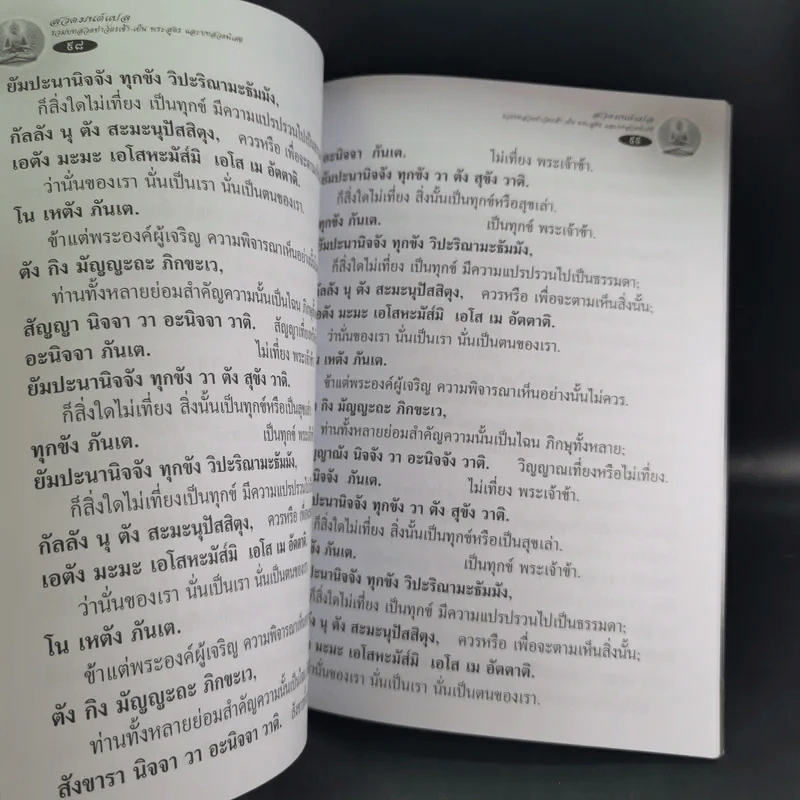 สวดมนต์แปล
รวมบทสวดทำวัตรเช้า-เย็น พระสูตร และบทสวดพิเศษ
๙๘
ยัมปะนานิจจัง ทุกขัง วิปะริณามะธัมมัง,
ก็สิ่งใดไม่เที่ยง เป็นทุกข์ มีความแปรปรวนไปเป็น
กัลลัง นุ ตัง สะมะนุปัสสิตุง, ควรหรือ เพื่อจะตาม
เอตัง มะมะ เอโสหะมัส๎มิ เอโส เม อัตตาติ.
ว่านั่นของเรา นั่นเป็นเรา นั่นเป็นตนของเรา.
โน เหตัง ภันเต.
ข้าแต่พระองค์ผู้เจริญ ความพิจารณาเห็นอย่างนั้น
ตัง กิง มัญญะถะ ภิกขะเว,
ท่านทั้งหลายย่อมสำคัญความนั้นเป็นไฉน
สัญญา นิจจา วา อะนิจจา วาติ. สัญญาเที่ยงหรือ
อะนิจจา ภันเต. ไม่เที่ยง พระเจ้าข้า
ยัมปะนานิจจัง ทุกขัง วา ตัง สุขัง วาติ.
ก็สิ่งใดไม่เที่ยง สิ่งนั้นเป็นทุกข์หรือเป็นสุขเล่า
ทุกขัง ภันเต. เป็นทุกข์ พระเจ้า
ยัมปะนานิจจัง ทุกขัง วิปะริณามะธัมมัง,
ก็สิ่งใดไม่เที่ยงเป็นทุกข์ มีความแปรปรวนไปเป็น
กัลลัง นุ ตัง สะมะนุปัสสิตุง, ควรหรือ
เอตัง มะมะ เอโสหะมัส๎มิ เอโส เม อัตตาติ.
ว่านั่นของเรา นั่นเป็นเรา นั่นเป็นตนของเรา
โน เหตัง ภันเต.
ข้าแต่พระองค์ผู้เจริญ ความพิจารณาเห็น
ตัง กิง มัญญะถะ ภิกขะเว,
ท่านทั้งหลายย่อมสำคัญความนั้นเป็น
สังขารา นิจจา วา อะนิจจา วาติ.
สวดมนต์แปล
๙๙
อะนิจจา ภันเต. ไม่เที่ยง พระเจ้าข้า.
ยัมปะนานิจจัง ทุกขัง วา ตัง สุขัง วาติ.
ก็สิ่งใดไม่เที่ยง สิ่งนั้นเป็นทุกข์หรือสุขเล่า.
ทุกขัง ภันเต. เป็นทุกข์ พระเจ้าข้า.
ยัมปะนานิจจัง ทุกขัง วิปะริณามะธัมมัง,
ก็สิ่งใดไม่เที่ยง เป็นทุกข์ มีความแปรปรวนไปเป็นธรรมดา;
กัลลัง นุ ตัง สะมะนุปัสสิตุง, ควรหรือ เพื่อจะตามเห็นสิ่งนั้น;
เอตัง มะมะ เอโสหะมัส๎มิ เอโส เม อัตตาติ.
ว่านั่นของเรา นั่นเป็นเรา นั่นเป็นตนของเรา.
น เหตัง ภันเต.
ข้าแต่พระองค์ผู้เจริญ ความพิจารณาเห็นอย่างนั้นไม่ควร.
ง กิง มัญญะถะ ภิกขะเว,
ท่านทั้งหลายย่อมสำคัญความนั้นเป็นไฉน ภิกษุทั้งหลาย;
ญญาณัง นิจจัง วา อะนิจจัง วาติ. วิญญาณเที่ยงหรือไม่เที่ยง.
นิจจัง ภันเต. ไม่เที่ยง พระเจ้าข้า.
ปะนานิจจัง ทุกขัง วา ตัง สุขัง วาติ.
ก็สิ่งใดไม่เที่ยง สิ่งนั้นเป็นทุกข์หรือเป็นสุขเล่า.
ขัง ภันเต. เป็นทุกข์ พระเจ้าข้า.
ปะนานิจจัง ทุกขัง วิปะริณามะธัมมัง,
สิ่งใดไม่เที่ยง เป็นทุกข์ มีความแปรปรวนไปเป็นธรรมดา;
ง นุ ตัง สะมะนุปัสสิตุง, ควรหรือ เพื่อจะตามเห็นสิ่งนั้น;
มะมะ เอโสหะมัส๎มิ เอโส เม อัตตาติ.
นั่นของเรา นั่นเป็นเรา นั่นเป็นตนของเรา.